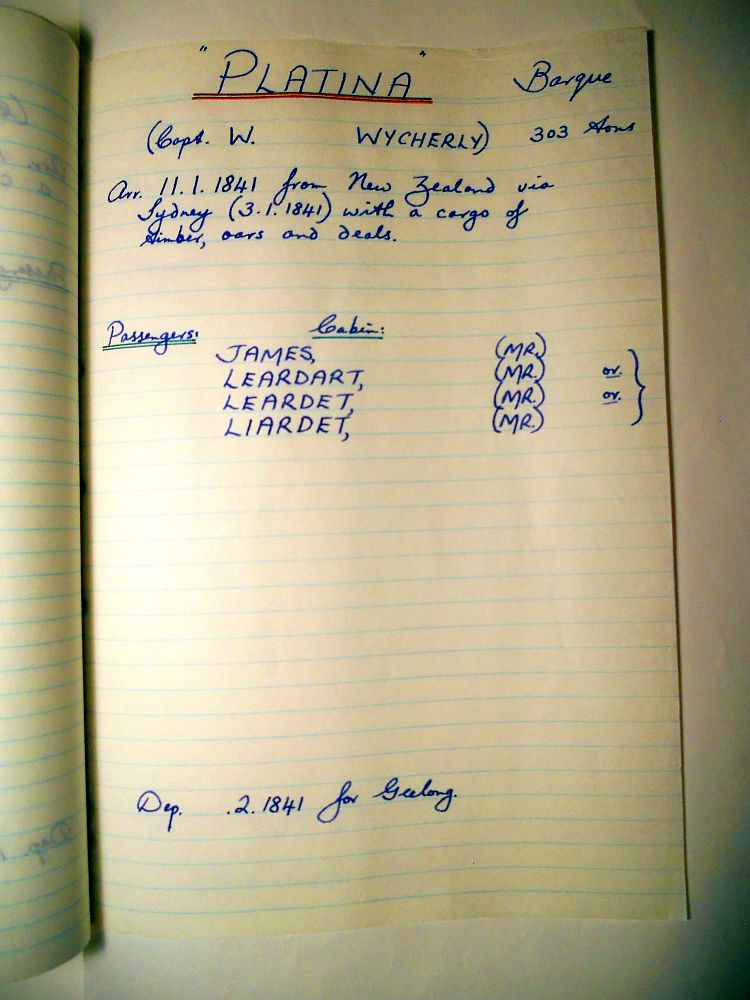 "PLATINA" Barque
(Capt. W. WYCHERLY) 303 tons
Arr. 11.1.1841 from New Zealand via
Sydney (3.1.1841) with a cargo of
timber, oars and deals.
Passengers: Cabin:
JAMES, (MR.)
LEARDART, (MR.) or.
LEARDET, (MR.) or.
LIARDET, (MR.)
Dep. .2.1841 for Geelong.